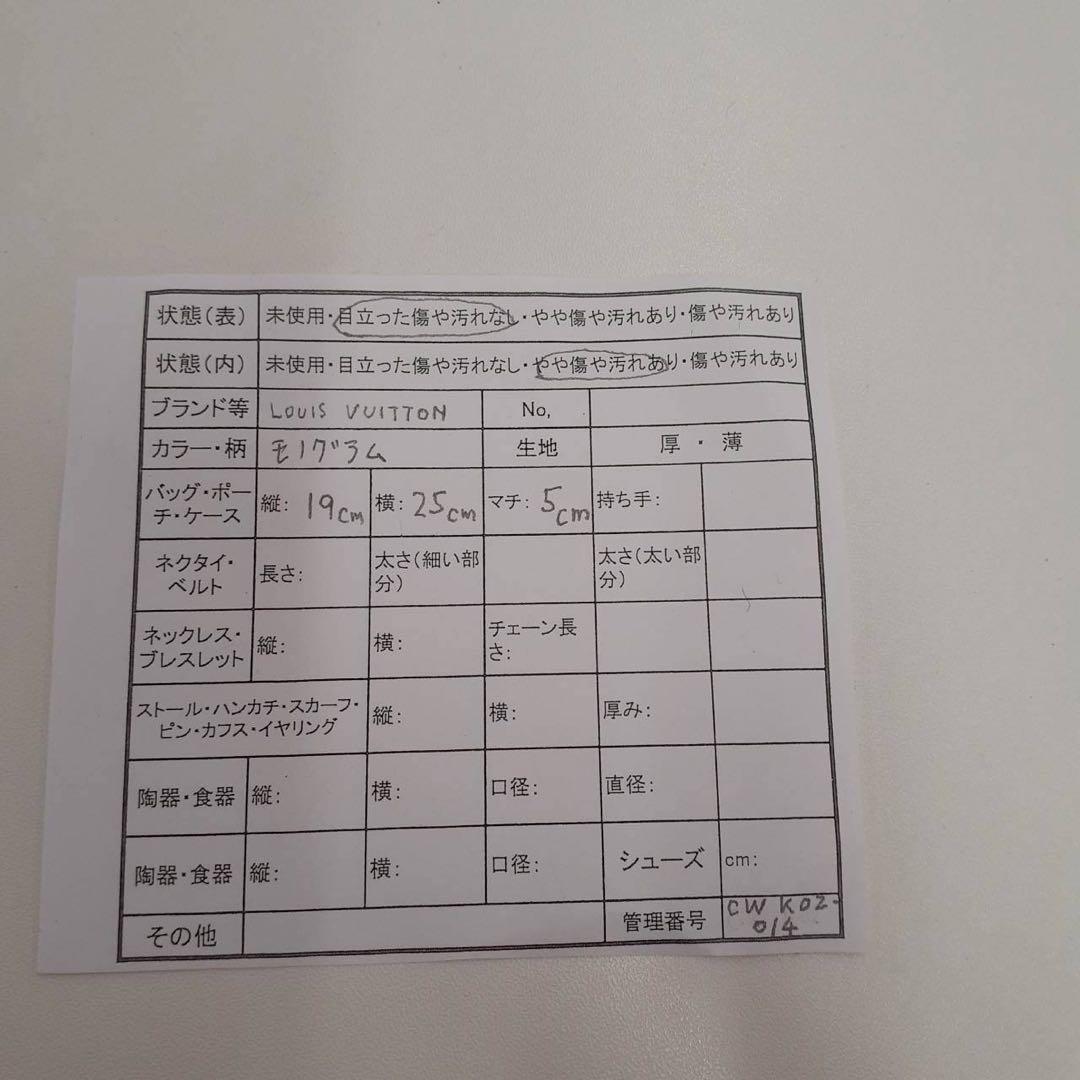 状態(表) 未使用・目立った傷や汚れなし・やや傷や汚れあり・傷や汚れあり
状態(内) 未使用・目立った傷や汚れなし・やや傷や汚れあり・傷や汚れあり
ブランド等 LOUIS VUITTON No,
カラー・柄 モノグラム 生地 厚・薄
バッグ・ポー
チ・ケース 縦: 19cm 横: 25cm マチ: 5cm 持ち手:
ネクタイ・
ベルト 長さ: 太さ(細い部
分) 太さ(太い部
分)
ネックレス・
ブレスレット 縦: 横: チェーン長
さ:
ストール・ハンカチ・スカーフ・
ピン・カフス・イヤリング 縦: 横: 厚み:
陶器・食器 縦: 横: 口径: 直径:
陶器・食器 縦: 横: 口径: シューズ cm:
その他 管理番号 CW K02-
014